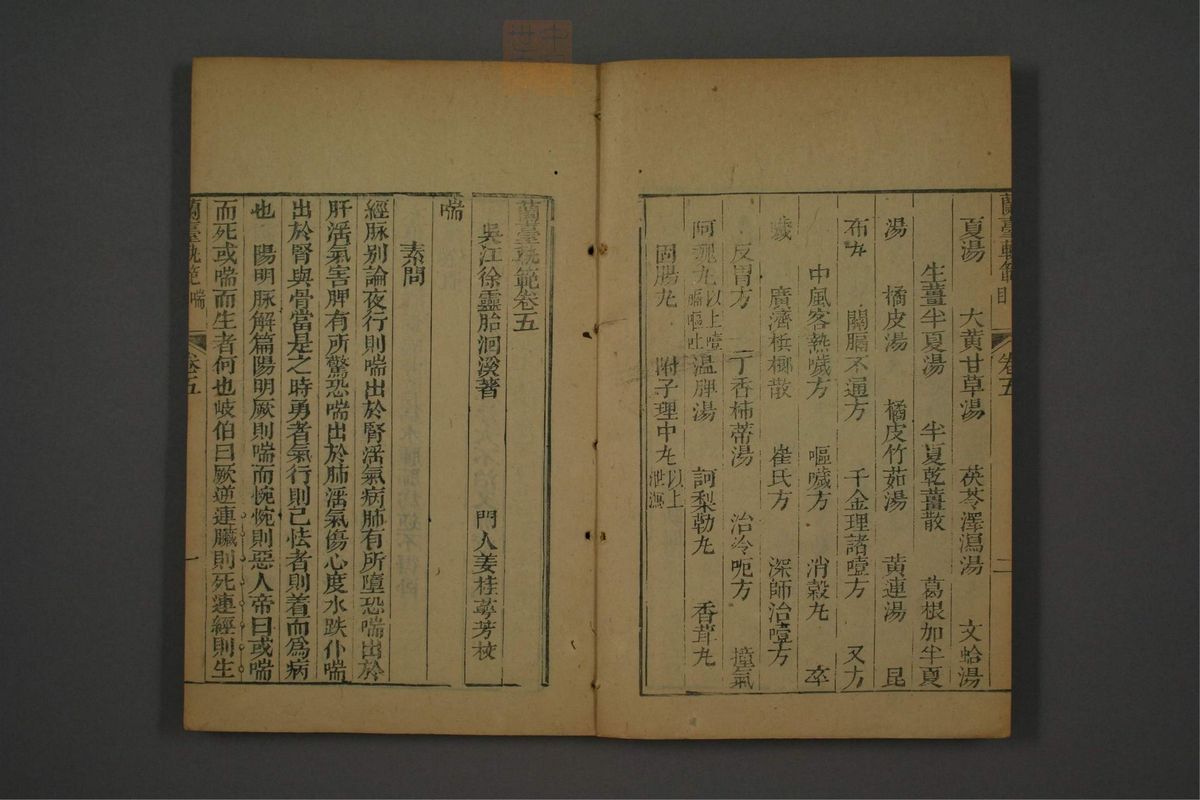 夏湯 大黃甘草湯 茯苓澤瀉湯 文蛤湯
生薑半夏湯 半夏乾薑散 葛根加半夏
湯 橘皮湯 橘皮竹茹湯 黃連湯 昆
布丸 關膈不通方 千金理諸噎方 又方
中風客熱噦方 嘔噦方 消穀丸 卒
噦 廣濟檳榔散 崔氏方 深師治噎方
反胃方 丁香柿蒂湯 治冷呃方 撞氣
阿魏丸以上噎膈嘔吐 溫脾湯 訶梨勒丸 香茸丸
固腸丸 附子理中丸以上泄瀉
蘭臺軌範 卷五 二
蘭臺軌範卷五
吳江徐靈胎洄溪著 門人姜桂萼芳校
喘
素問
經脉別論夜行則喘出於腎淫氣病肺有所墮恐喘出於
肝淫氣害脾有所驚恐喘出於肺淫氣傷心度水跌仆喘
出於腎與骨當是之時勇者氣行則已怯者則着而爲病
也 陽明脉解篇陽明厥則喘而惋惋則惡人帝曰或喘
而死或喘而生者何也岐伯曰厥逆連臟則死連經則生
蘭臺軌範 喘 卷五 一